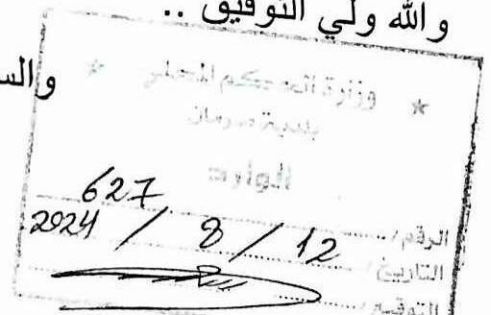 والله ولي التوفيق ..
والس
* وزارة الحكم المحلي *
بلدية صرمان
الوارد
الرقم: 627
التاريخ: 12 / 8 / 2024
التوقيع: